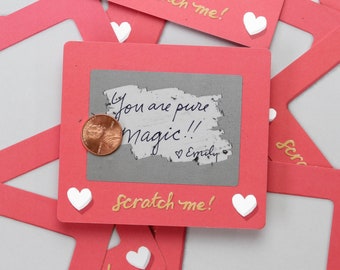 scratch me!
You are pure
magic!!
♡ Emily
scratch me!
scratch
scratch